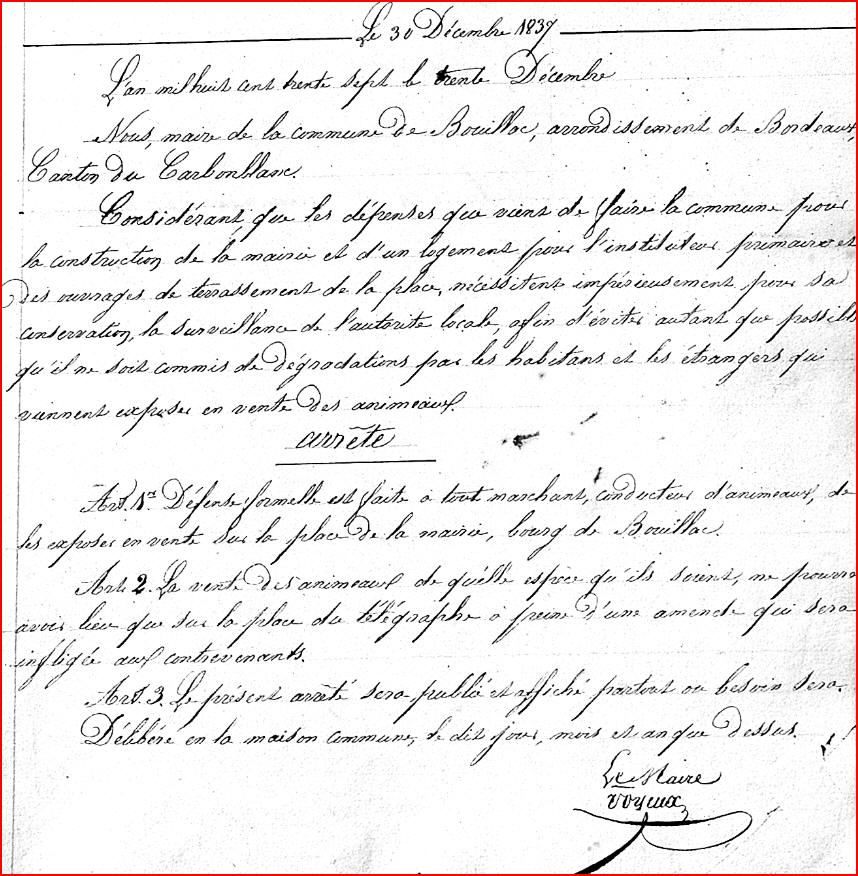 Le 30 Décembre 1837
L'an mil huit cent trente sept le trente Décembre
Nous, maire de la commune de Bouillac, arrondissement de Bordeaux,
Canton du Carbonblanc.
Considérant, que les dépenses que vient de faire la commune pour
la construction de la mairie et d'un logement pour l'instituteur primaire et
des ouvrages de terrassement de la place, nécessitent impérieusement pour sa
conservation, la surveillance de l'autorité locale, afin d'éviter autant que possible
qu'il ne soit commis de dégradations par les habitans et les étrangers qui
viennent exposer en vente des animeaux.
arrête
Art. 1er Défense formelle est faite à tout marchant, conducteur d'animeaux, de
les exposer en vente sur la place de la mairie, bourg de Bouillac.
Art. 2. La vente des animeaux de quélle espèce qu'ils soient, ne pourra
avoir lieu que sur la place du télégraphe à peine d'une amende qui sera
infligée aux contrevenants.
Art. 3. Le présent arrêté sera publié et affiché partout ou besoin sera.
Délibéré en la maison commune, le dit jour, mois et an que dessus.
Le Maire
Voyeux